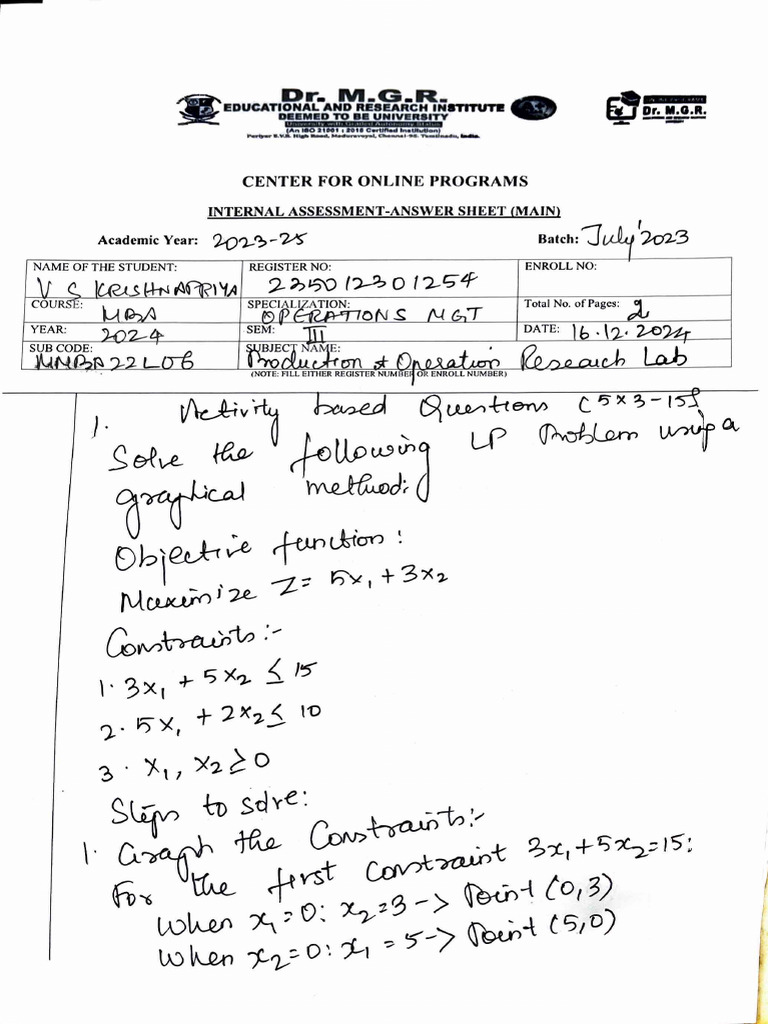 Dr. M.G.R.
EDUCATIONAL AND RESEARCH INSTITUTE
DEEMED TO BE UNIVERSITY
University with Graded Autonomy Status
(An ISO 21001 : 2018 Certified Institution)
Periyar E.V.R. High Road, Maduravoyal, Chennai-95. Tamilnadu, India.
Dr. M.G.R.
CENTER FOR ONLINE PROGRAMS
INTERNAL ASSESSMENT-ANSWER SHEET (MAIN)
Academic Year: 2023-25 Batch: July'2023
NAME OF THE STUDENT: V S KRISHNAPRIYA
REGISTER NO: 235012301254
ENROLL NO:
COURSE: MBA
SPECIALIZATION: OPERATIONS MGT
Total No. of Pages: 2
YEAR: 2024
SEM: III
DATE: 16.12.2024
SUB CODE: MMBA22L06
SUBJECT NAME: Production & Operation Research Lab
(NOTE: FILL EITHER REGISTER NUMBER OR ENROLL NUMBER)
1. Activity based Questions (5x3-15)
Solve the following LP Problem using a
graphical method:
Objective function:
Maximize Z= 5x₁ + 3x₂
Constraints:-
1. 3x₁ + 5x₂ ≤ 15
2. 5x₁ + 2x₂ ≤ 10
3. x₁, x₂ ≥ 0
Steps to solve:
1. Graph the Constraints:-
For the first constraint 3x₁+5x₂=15:
When x₁=0: x₂=3 -> Point (0,3)
When x₂=0: x₁ = 5 -> Point (5,0)